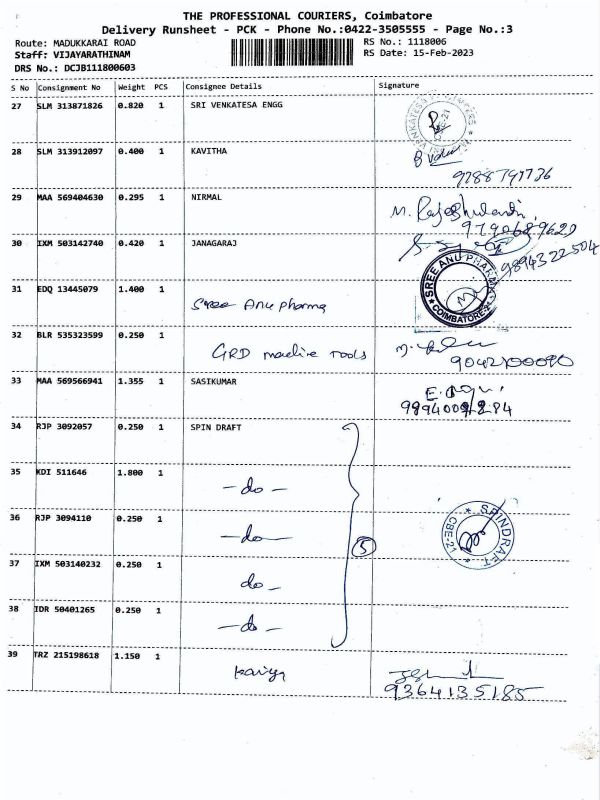 THE PROFESSIONAL COURIERS, Coimbatore
Delivery Runsheet - PCK - Phone No.:0422-3505555 - Page No.:3
Route: MADUKKARAI ROAD RS No.: 1118006
Staff: VIJAYARATHINAM RS Date: 15-Feb-2023
DRS No.: DCJB111800603
S No Consignment No Weight PCS Consignee Details Signature
27 SLM 313871826 0.820 1 SRI VENKATESA ENGG
28 SLM 313912097 0.400 1 KAVITHA
29 MAA 569404630 0.295 1 NIRMAL
9790689629
30 IXM 503142740 0.420 1 JANAGARAJ
9894322504
31 EDQ 13445079 1.400 1 Sree Anu pharma
SREE ANU PHARMA COIMBATORE-21
32 BLR 535323599 0.250 1 GRD machine Tools
33 MAA 569566941 1.355 1 SASIKUMAR
34 RJP 3092057 0.250 1 SPIN DRAFT
35 KDI 511646 1.800 1 -do-
36 RJP 3094110 0.250 1 -do-
5
SPINDRAFT CBE-21
37 IXM 503140232 0.250 1 do-
38 IDR 50401265 0.250 1 -do-
39 TRZ 215198618 1.150 1
9364135185